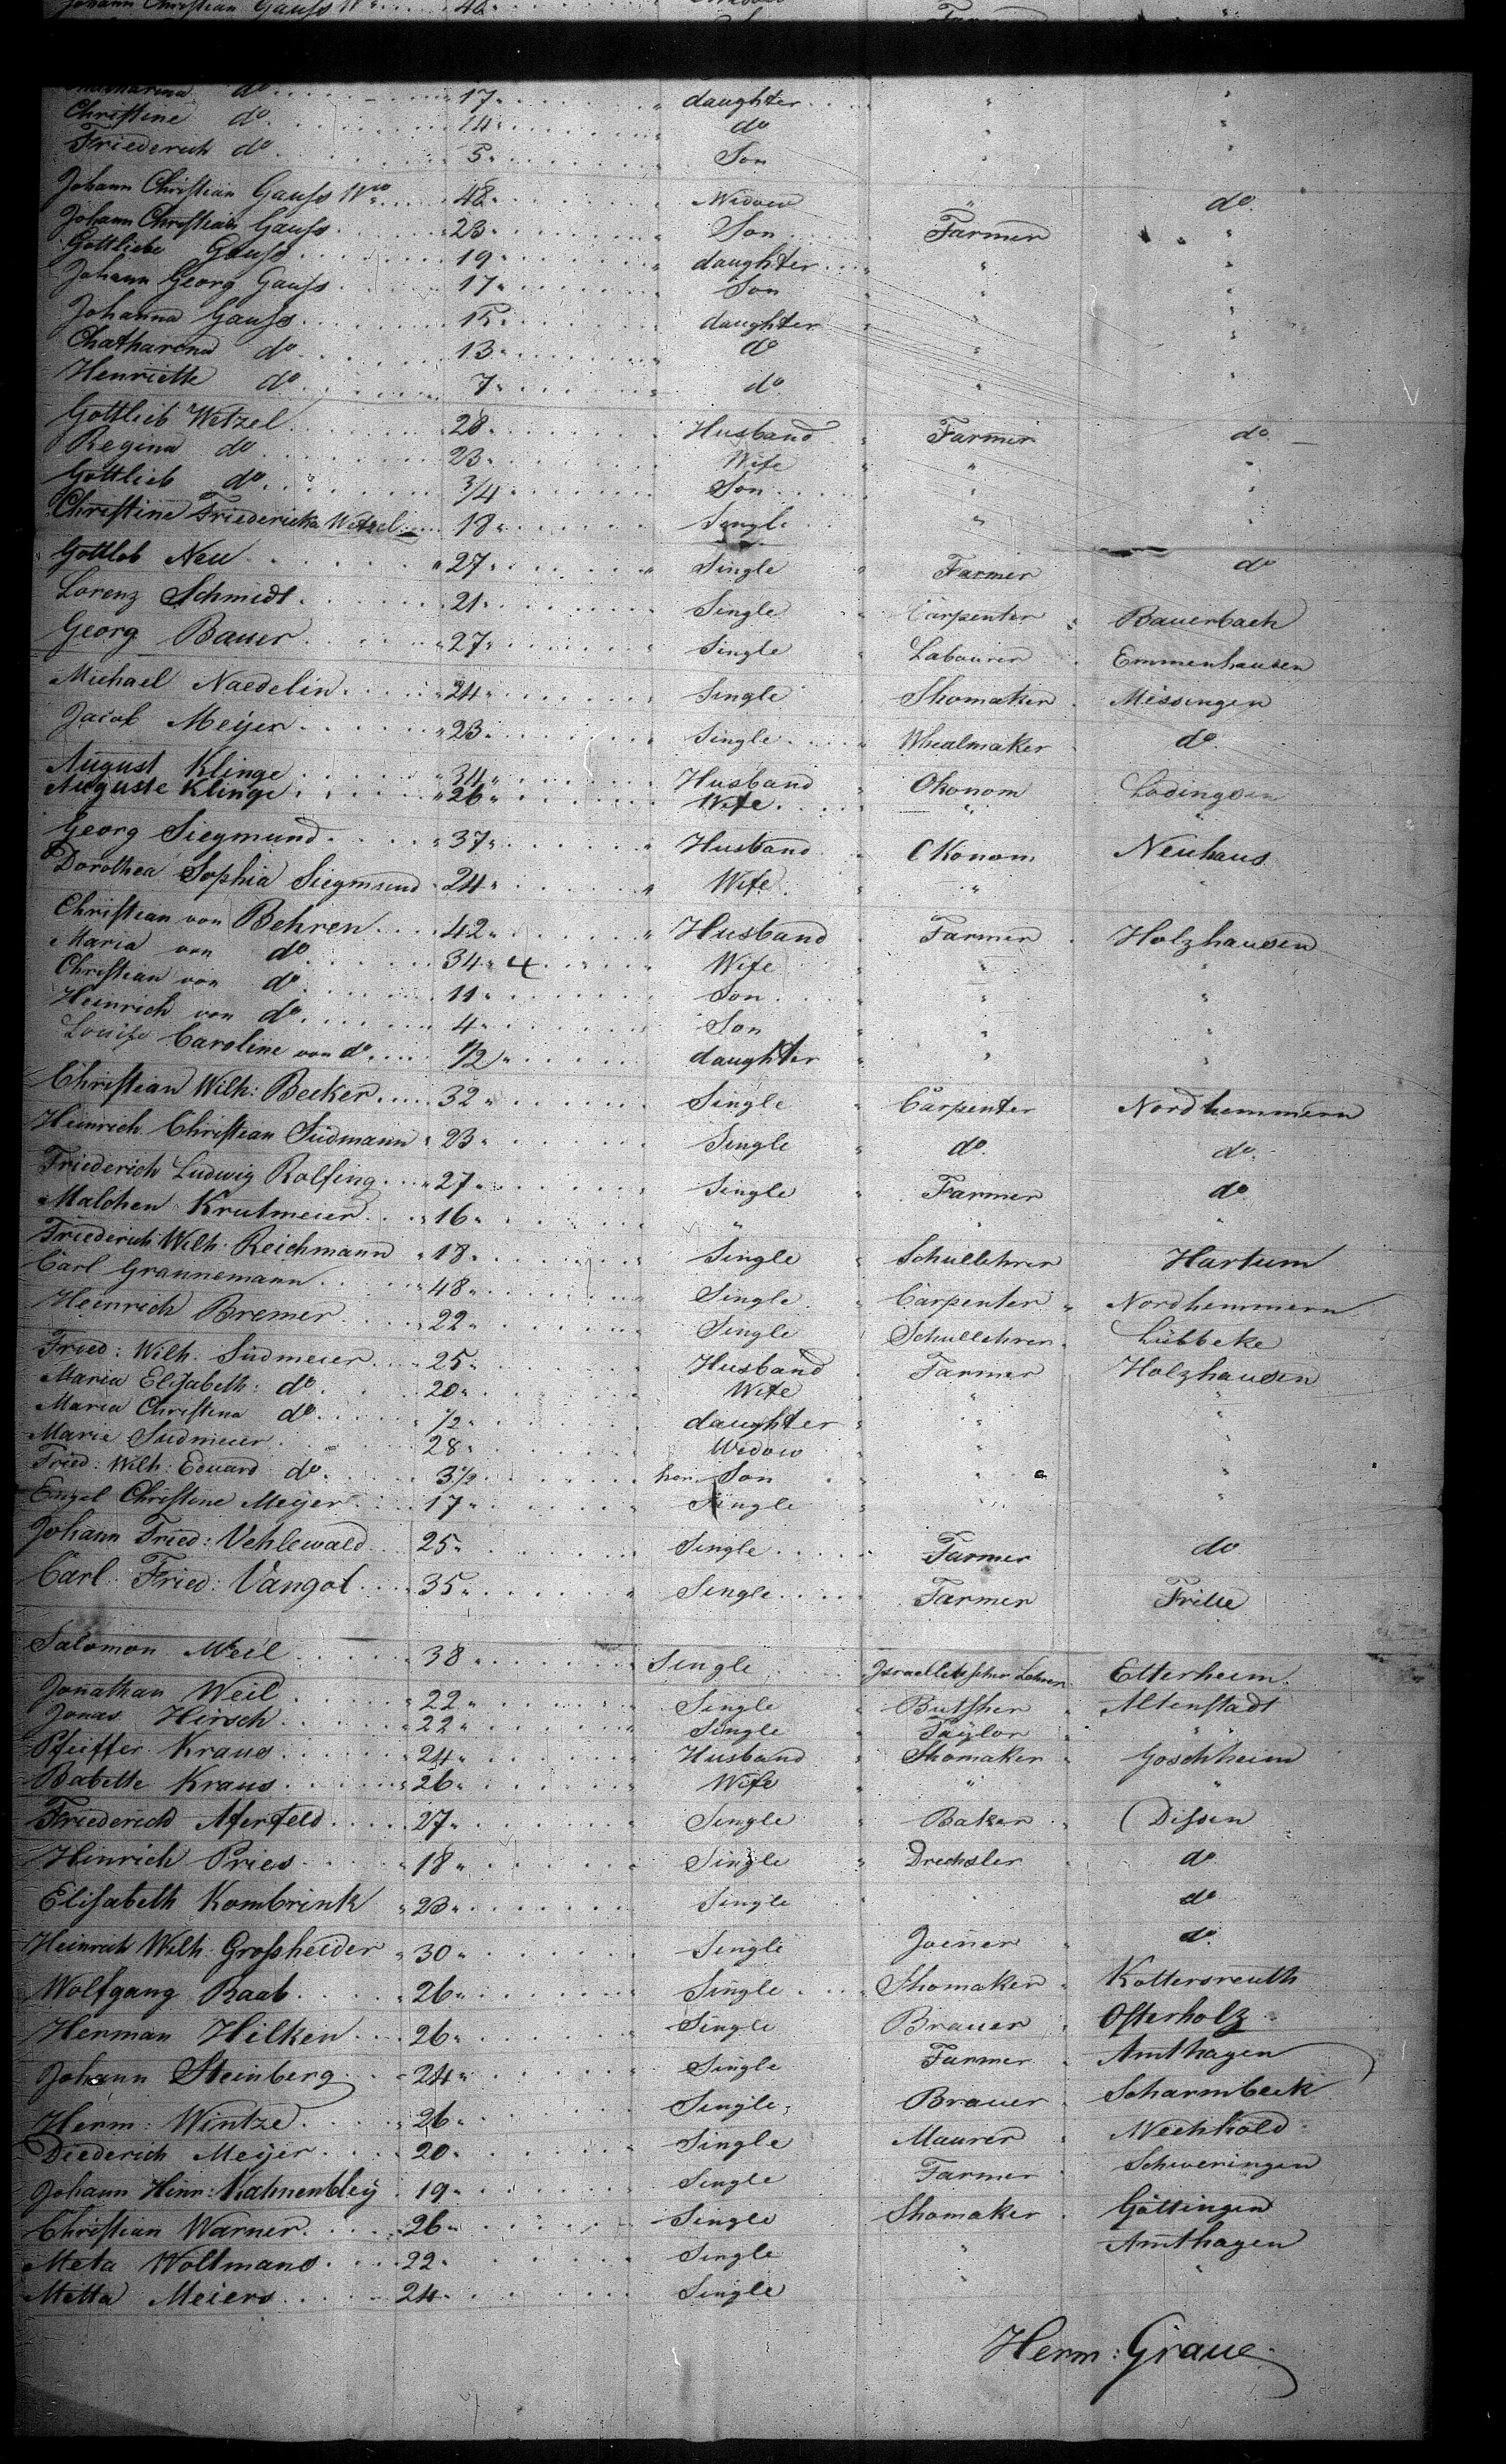 Johann Christian Gauss Wwe 48
Chatharina do 17 daughter "
Christine do 14 do "
Friederich do 5 Son "
Johann Christian Gauss Wwe 48 Widow " do
Johann Christian Gauss 23 Son Farmer "
Gottliebe Gauss 19 daughter " "
Johann Georg Gauss 17 Son " "
Johanna Gauss 15 daughter " "
Chatharina do 13 do " "
Henriette do 7 do " "
Gottlieb Wetzel 28 Husband Farmer do
Regina do 23 Wife " "
Gottlieb do 3/4 Son " "
Christine Friedericka Wetzel 18 Single " "
Gottlob Neu 27 Single Farmer do
Lorenz Schmidt 21 Single Carpenter Bauerbach
Georg Bauer 27 Single Labourer Emmenhausen
Michael Naedelin 24 Single Shomaker Missingen
Jacob Meijer 23 Single Whealmaker do
August Klinge 34 Husband Okonom Lödingsen
Auguste Klinge 26 Wife " "
Georg Siegmund 37 Husband Okonom Neuhaus
Dorothea Sophia Siegmund 24 Wife " "
Christian von Behren 42 Husband Farmer Holzhausen
Maria von do 34 4 Wife " "
Christian von do 11 Son " "
Heinrich von do 4 Son " "
Louise Caroline von do 1/2 daughter " "
Christian Wilh: Becker 32 Single Carpenter Nordhemmern
Heinrich Christian Südmann 23 Single do do
Friederich Ludwig Rolfing 27 Single Farmer do
Malchen Krutmeier 16 " " "
Friederich Wilh. Reichmann 18 Single Schullehrer Hartum
Carl Grannemann 48 Single Carpenter Nordhemmern
Heinrich Bremer 22 Single Schullehrer Lübbeke
Fried: Wilh. Südmeier 25 Husband Farmer Holzhausen
Maria Elisabeth: do 20 Wife " "
Maria Christina do 1/2 daughter " "
Marie Südmeier 28 Widow " "
Fried: Wilh: Eduard do 3 1/2 her Son " "
Engel Christine Meijer 17 Single " "
Johann Fried: Vehlewald 25 Single Farmer do
Carl Fried: Vangol 35 Single Farmer Frille
Salomon Weil 38 Single Israelletischer Lehrer Etterheim
Jonathan Weil 22 Single Butsher Altenstadt
Jonas Hirsch 22 Single Taylor "
Pfeiffer Kraus 24 Husband Shomaker Goschheim
Babette Kraus 26 Wife " "
Friederich Aferfeld 27 Single Baker Dissen
Hinrich Pries 18 Single Drechsler do
Elisabeth Kombrink 23 Single " do
Heinrich Wilh: Grossheider 30 Single Joiner do
Wolfgang Raab 26 Single Shomaker Kottersreuth
Herman Hilken 26 Single Brauer Osterholz
Johann Steinberg 24 Single Farmer Amthagen
Herm: Wintze 26 Single Brauer Scharmbeck
Diederich Meijer 20 Single Maurer Wechhold
Johann Hinr: Kahnenbleij 19 Single Farmer Schweringen
Christian Warner 26 Single Shomaker Göttingen
Meta Woltmans 22 Single " Amthagen
Metta Meiers 24 Single " "
Herm: Graue